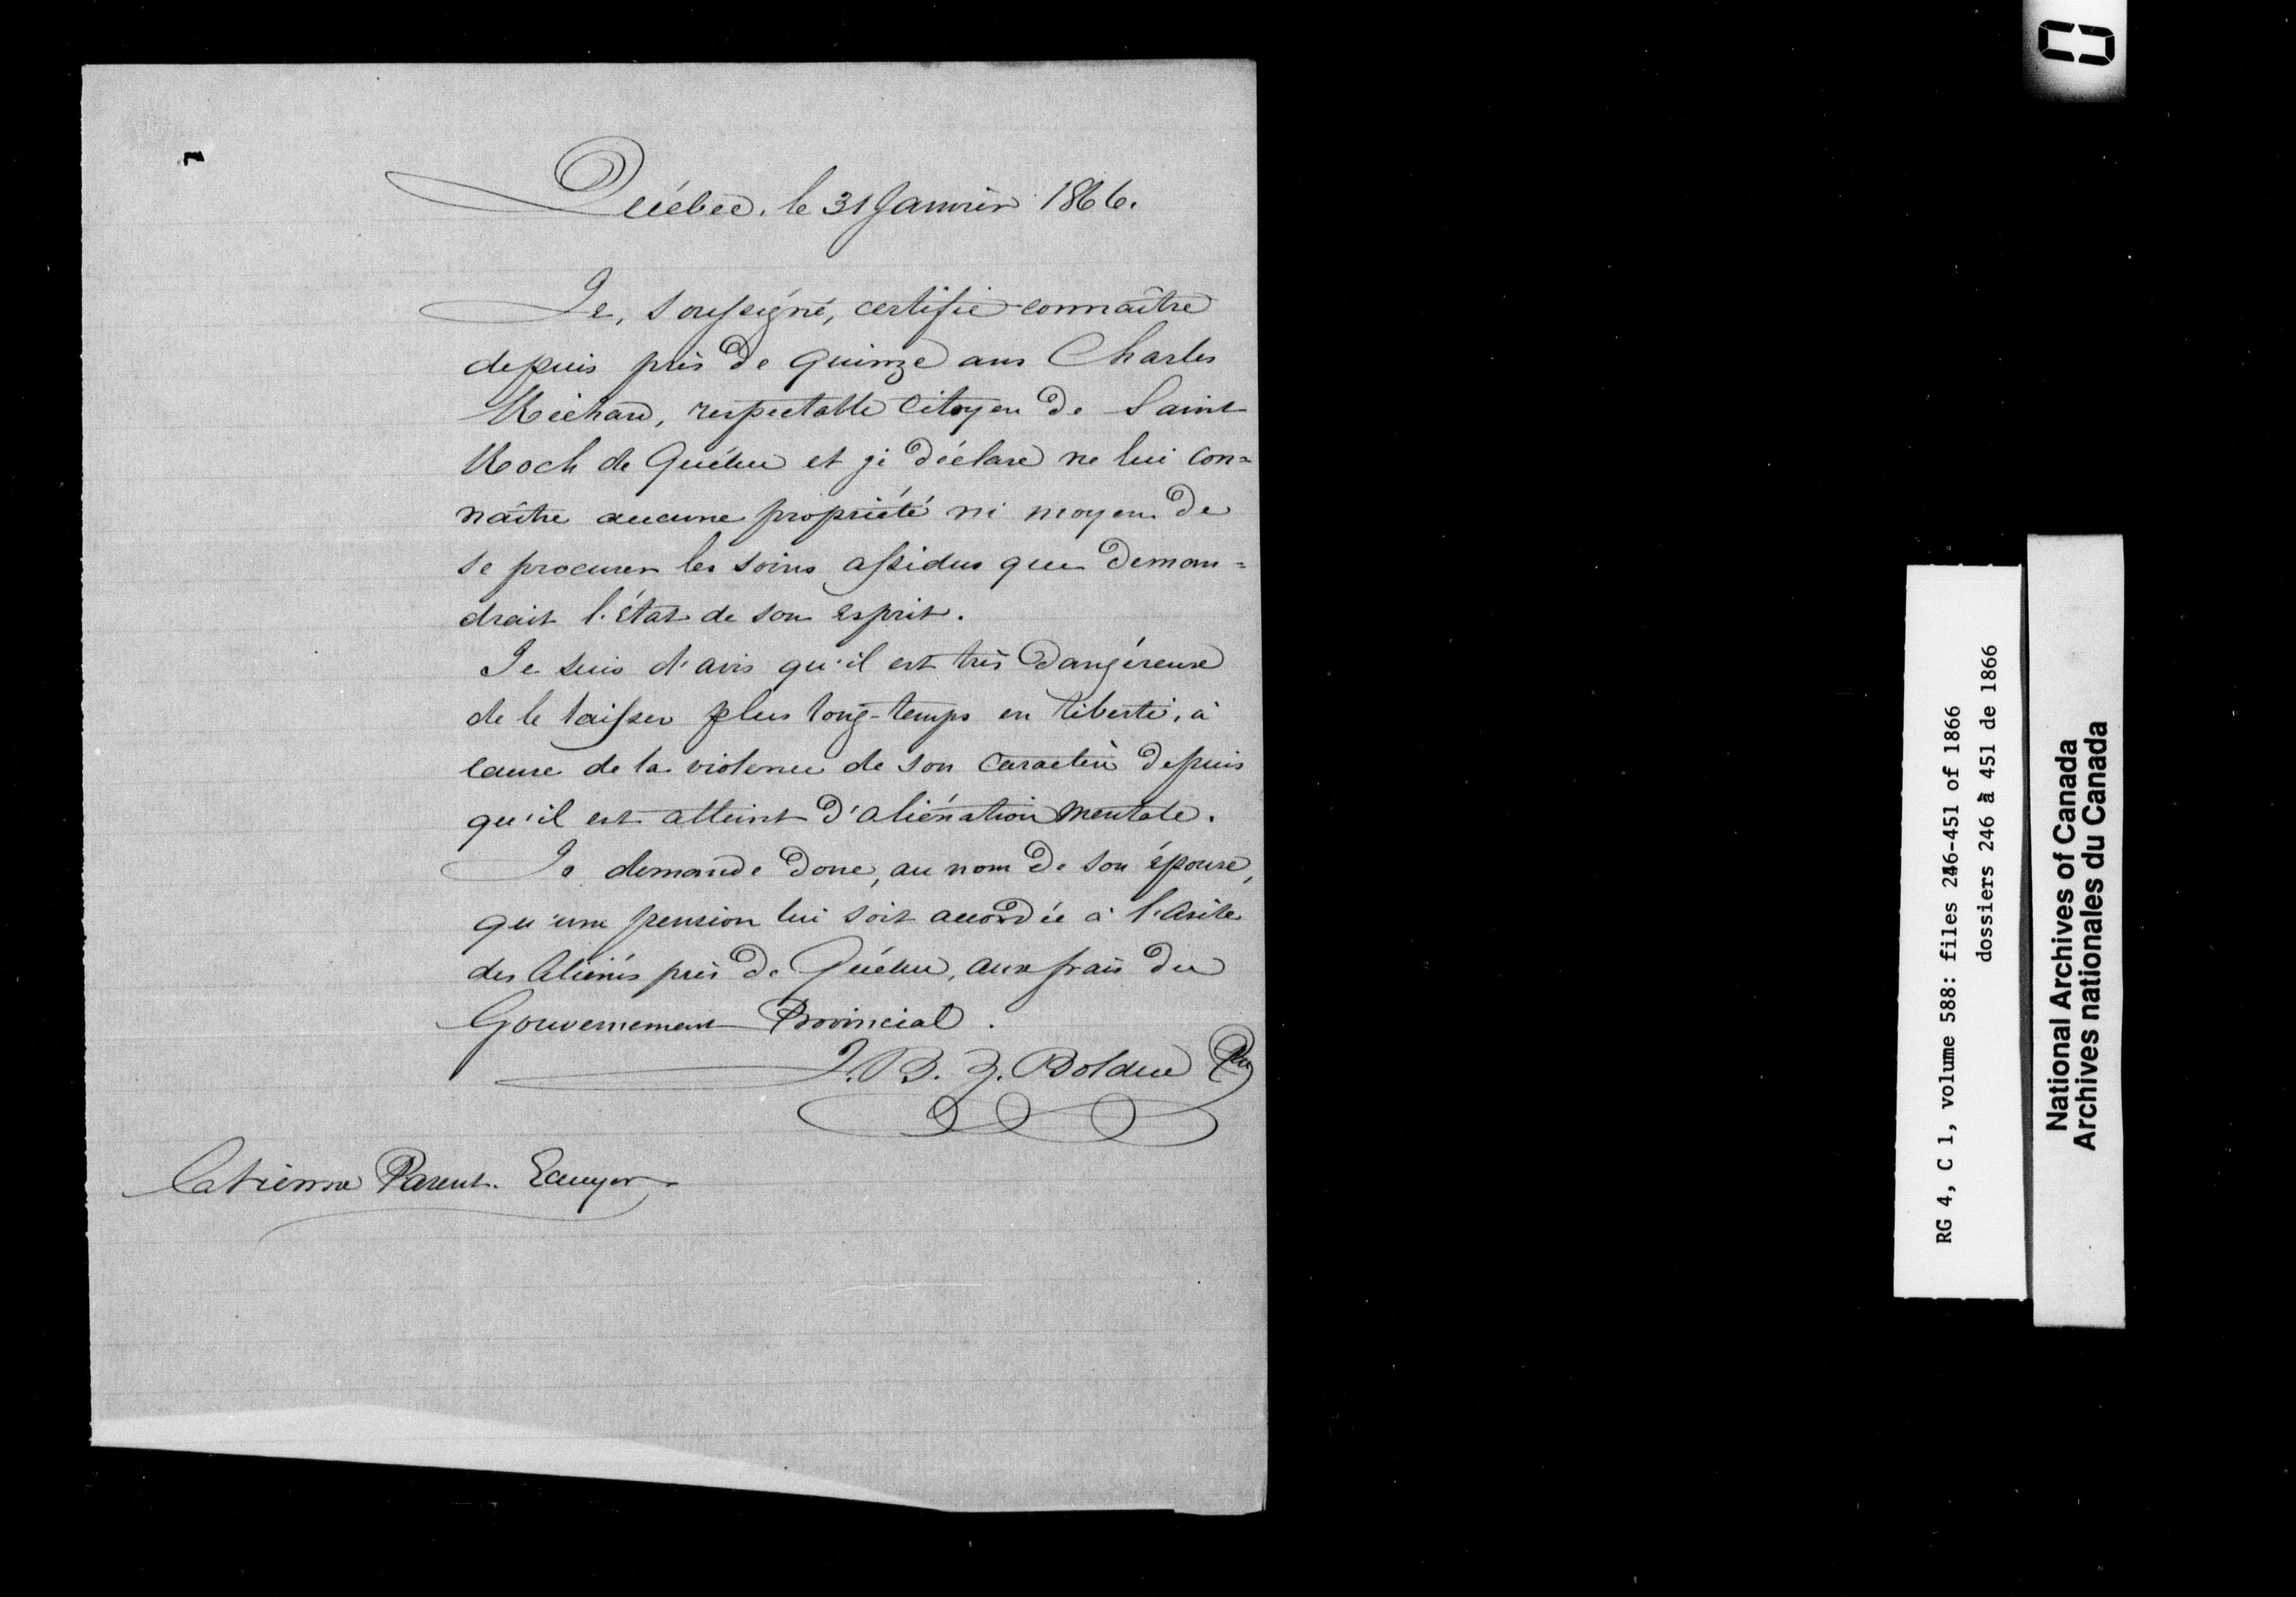 Québec, le 31 Janvier 1866.
Je, soussigné, certifie connaître
depuis près de quinze ans Charles
Richard, respectable citoyen de Saint
Roch de Québec et je déclare ne lui con=
naître aucune propriété ni moyen de
se procurer les soins assidus que deman=
drait l'état de son esprit.
Je suis d'avis qu'il est très dangéreuse
de le laisser plus long-temps en liberté, à
cause de la violence de son caractère depuis
qu'il est atteint d'aliénation mentale.
Je demande donc, au nom de son épouse,
qu'une pension lui soit accordée à l'Asile
des Aliénés près de Québec, aux frais du
Gouvernement Provincial.
J. B. Z. Bolduc Ptre
Etienne Parent. Ecuyer
RG 4, C 1, volume 588: files 246-451 of 1866
dossiers 246 à 451 de 1866
National Archives of Canada
Archives nationales du Canada